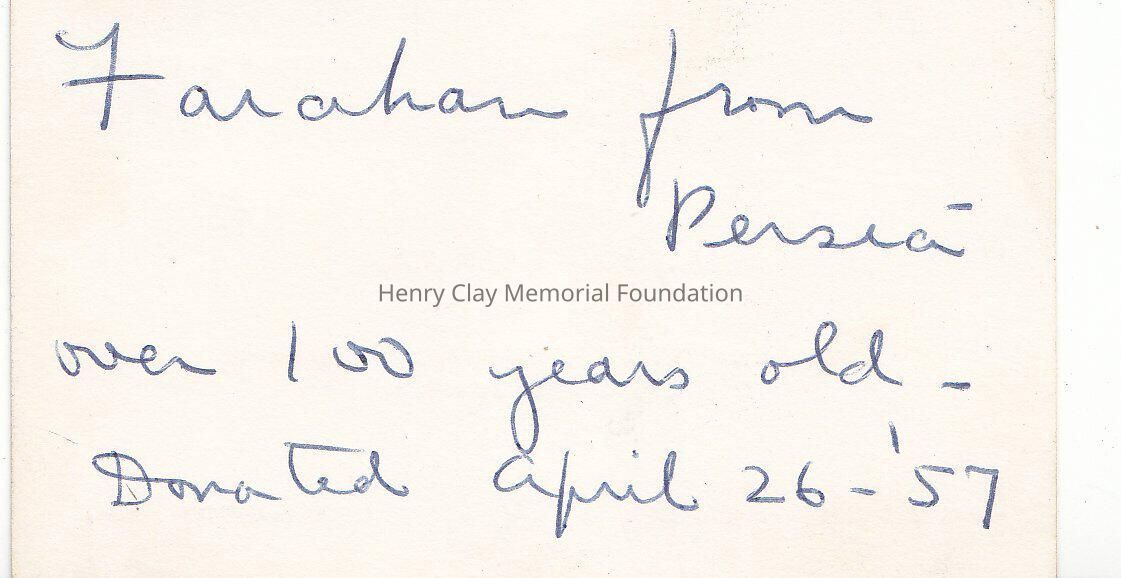 Farahan from
Persia
Henry Clay Memorial Foundation
over 100 years old -
Donated April 26 - '57